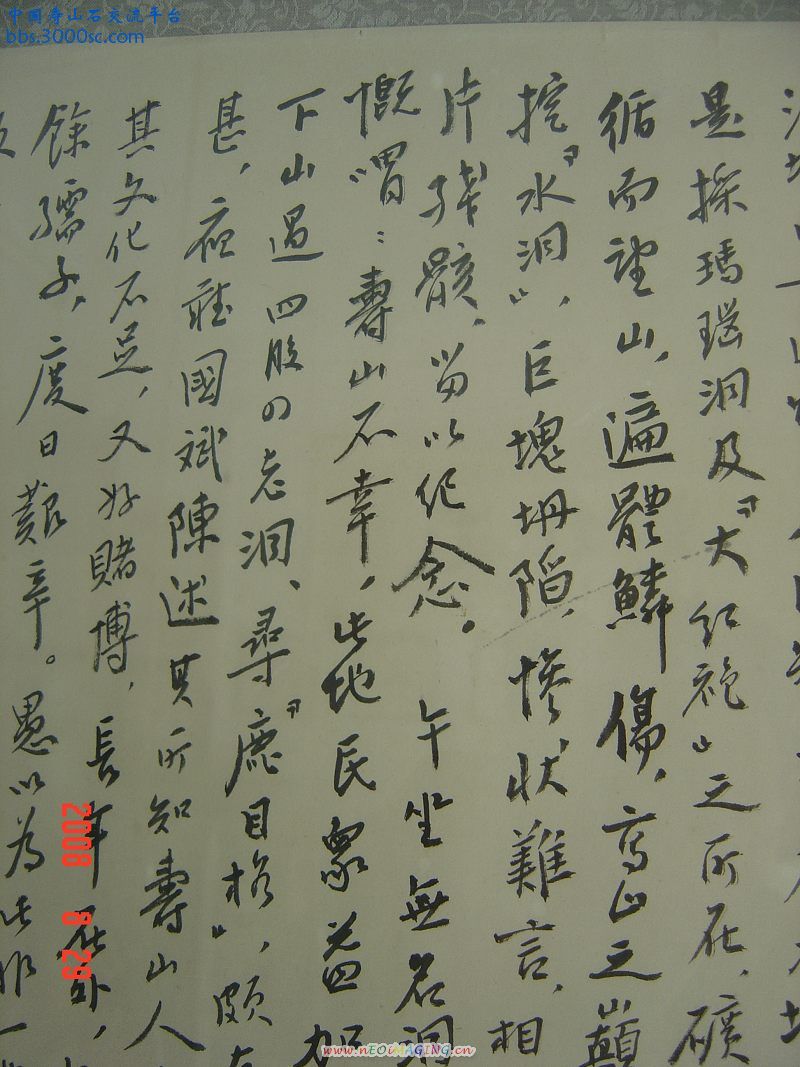 中国寿山石交流平台
bbs.3000sc.com
是採瑪瑙洞及『大紅袍』之所在，礦
循而望山，遍體鱗傷，高山之巔
挖『水洞』，巨塊坍陷，慘狀難言，相
片殘骸，留以纪念。 午坐無名洞
慨喟：壽山石幸，此地民眾益加
下山過四股四志洞、尋『鹿目格』，頗有
甚，夜穫國斌陳述其所知壽山人
其文化不足，又好賭博，長年在外，
餘孺子，度日艱辛。愚以為此非一
2008 8 29
www.nEOiMAGING.cn